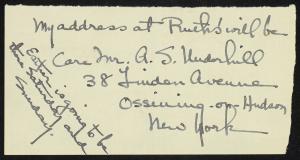 My address at Ruth's will be
Care Mr. A. S. Underhill
38 Linden Avenue
Ossining-on-Hudson
New York
Esther is going to be
there Saturday and
Sunday.